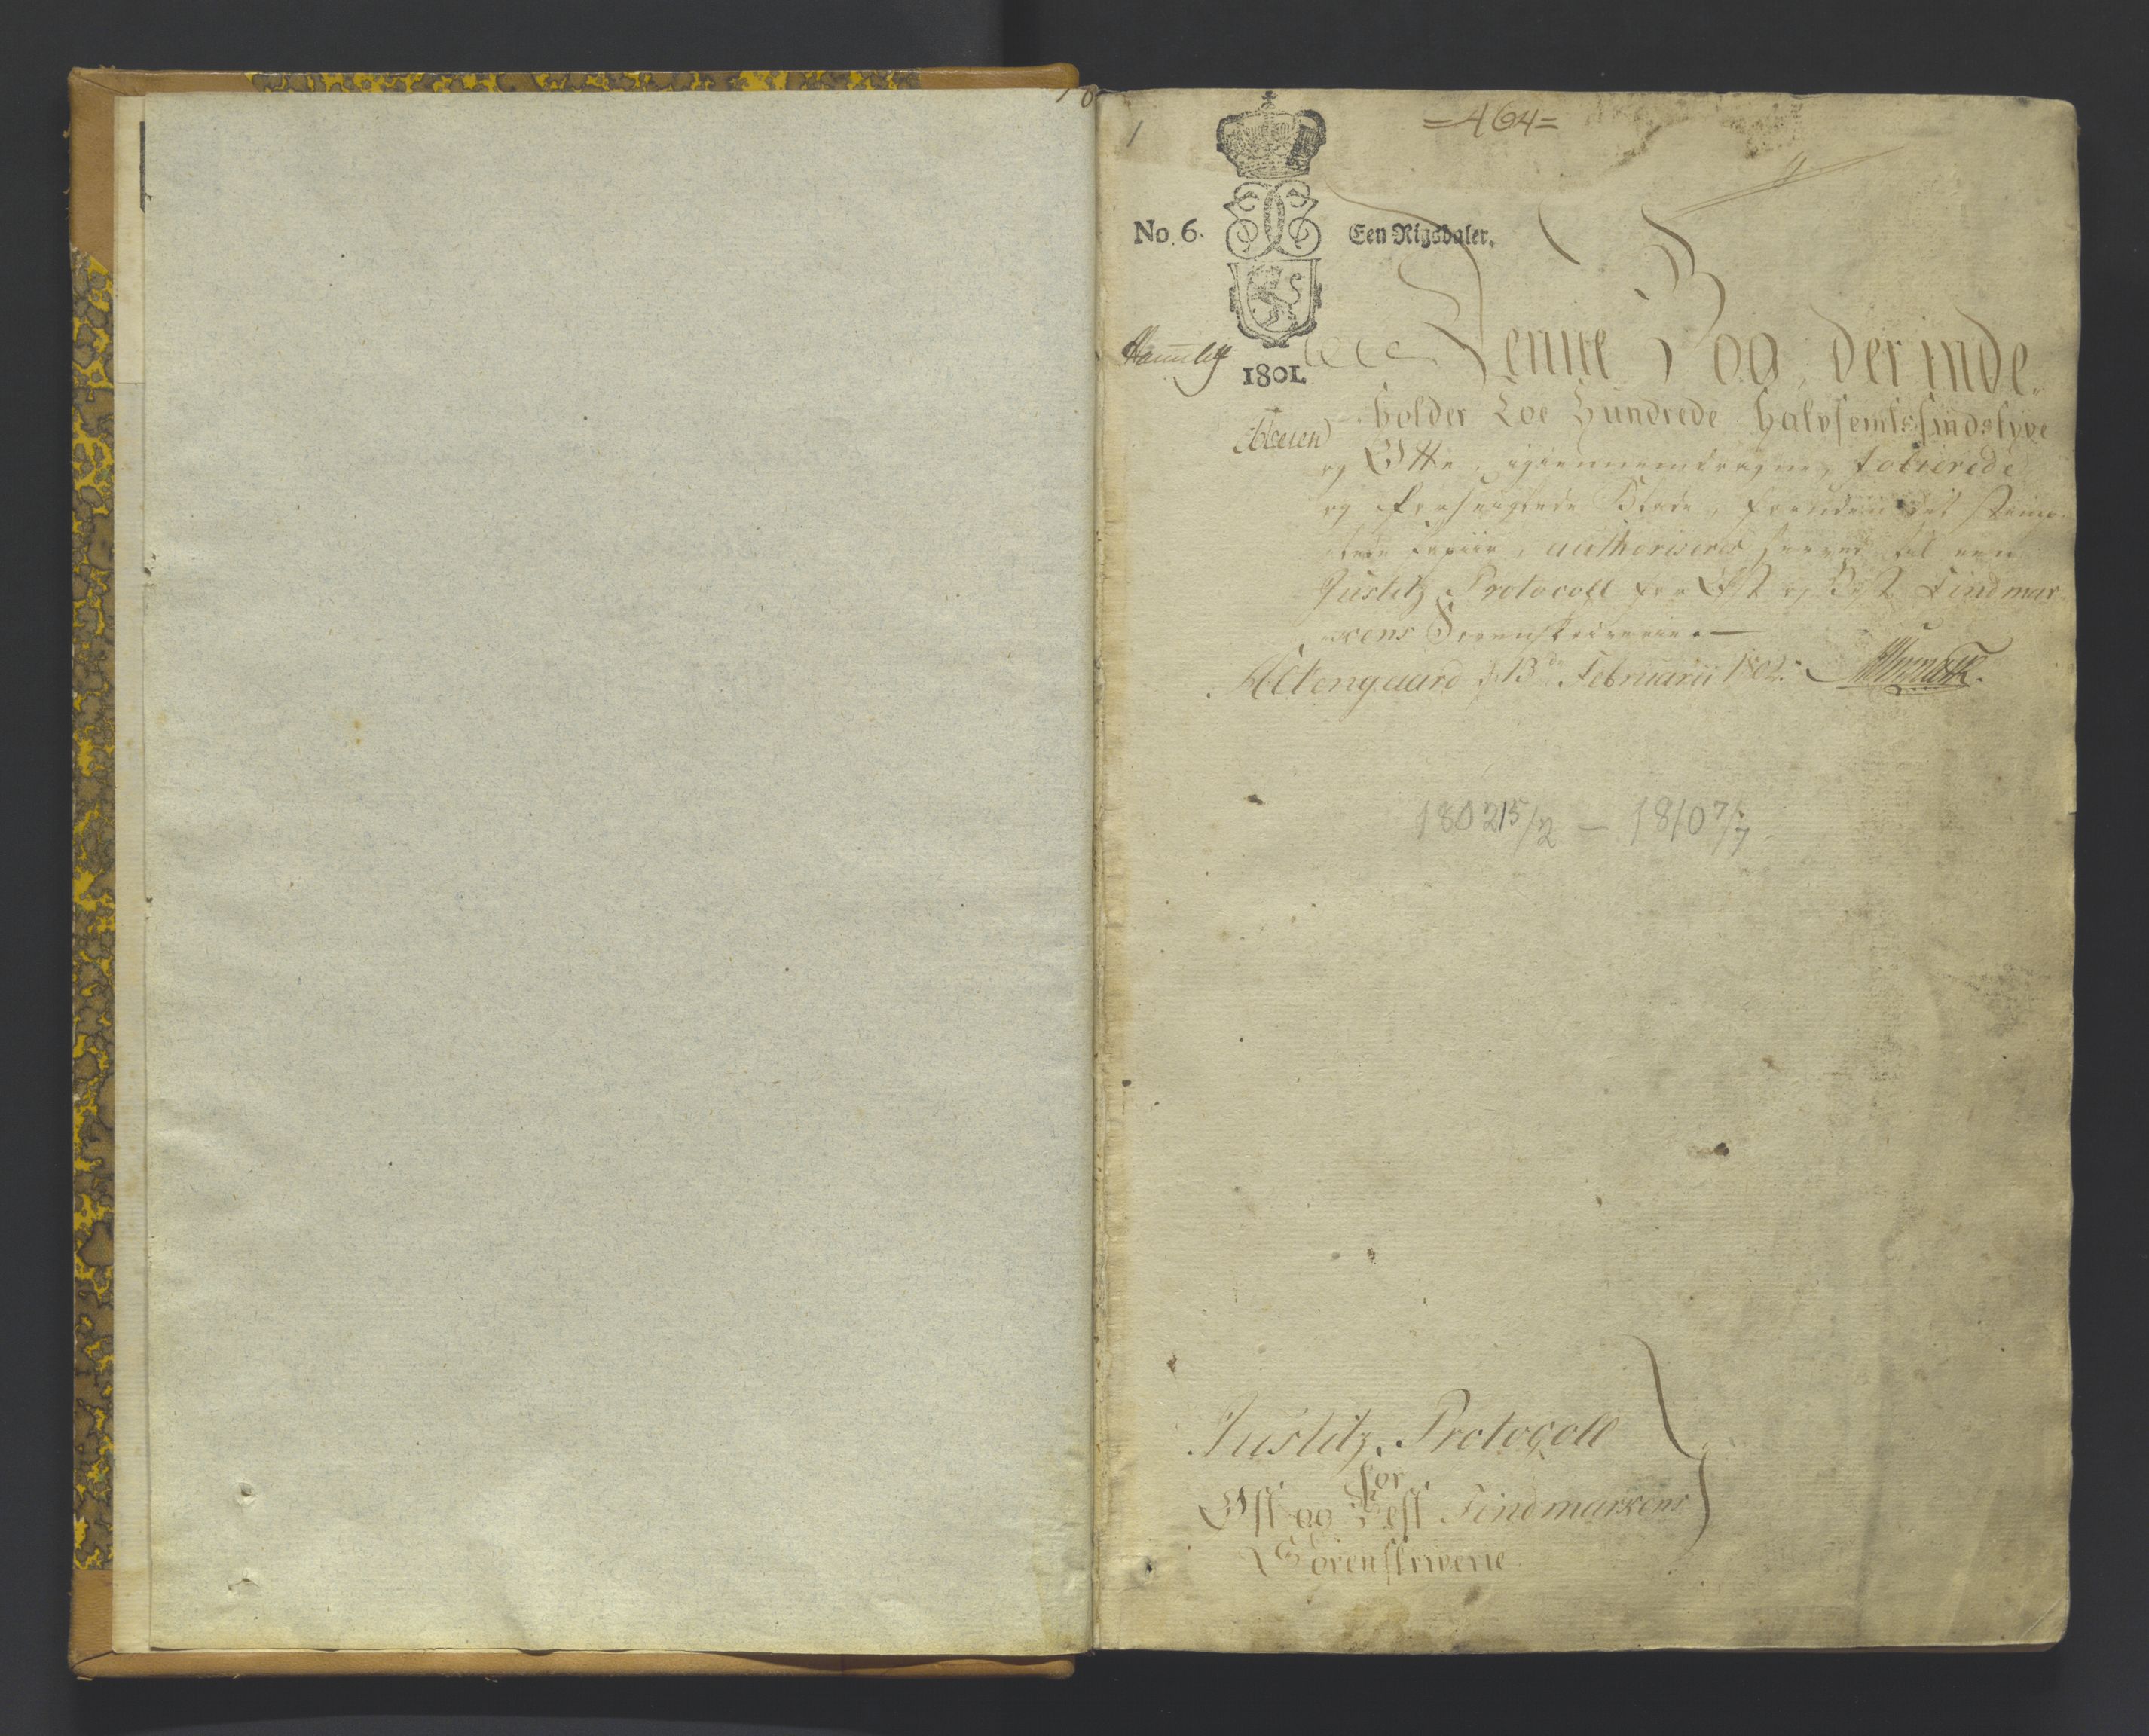 1
=464=
No. 6.
Een Rigsdaler.
1801.
Denne Bog, der inde-
holder Toe Hundrede halvfemtesindstyve
og Otte, igiennemdragne, folierede
og forseiglede Blade, foruden det stemp-
lede Papiir, authoriseres herved til een
Justitz Protocoll for Øst og Vest Findmar-
kens Sorenskriverie. —
Altengaard d. 13de Februarii 1802.
1802 15/2 — 1810 7/7
Justitz Protocoll
for
Øst og Vest Findmarkens
Sorenskriverie